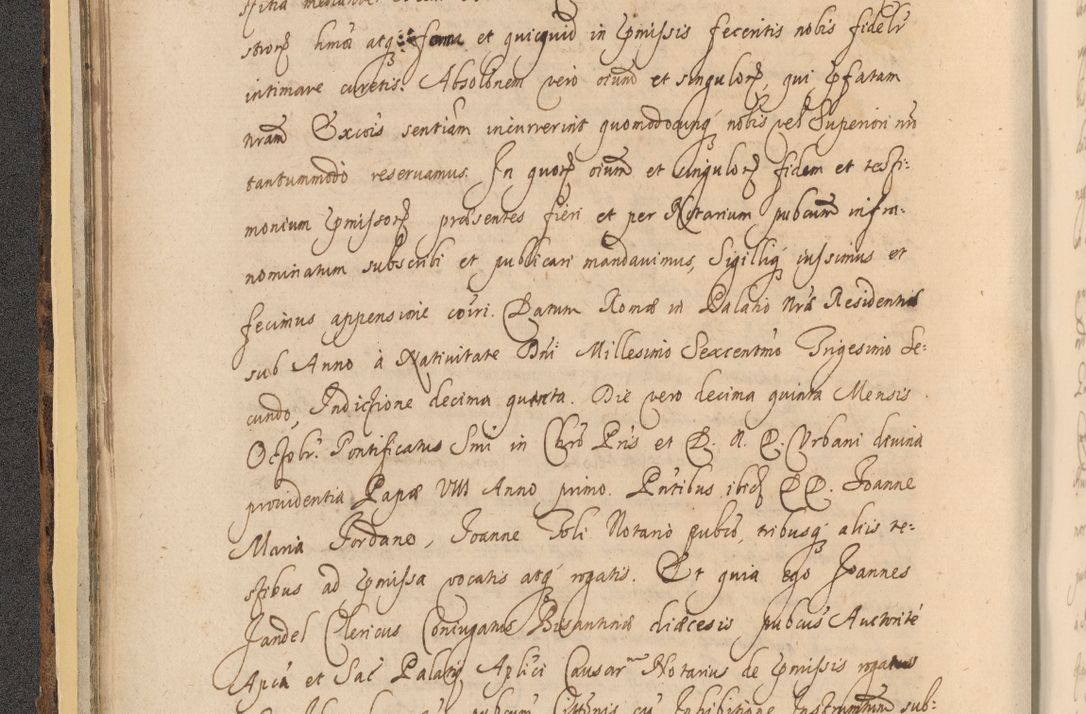 strorꝝ hmōi atq; forma et quicquid in ꝑmissis feceritis nobis fidelr̄
intimare curetis. Absolōnem vero oīum et singulorꝝ, qui ꝑfatam
nrām Excōis sentiām incurrerint quomodocunq; nobis vel Superiori nrō
tantummodo reservamus. In quorꝝ oīum et singulorꝝ fidem et testi:
monium ꝑmissorꝝ præsentes fieri et per Notarium pubcum infra:
nominatum subscribi et publicari mandavimus, Sigilliq; iussimus et
fecimus appensione cōiri. Datum Romæ in Palatio Nræ Residentiæ
sub Anno à Nativitate Dn̄i Millesimo Sexcentmo Trigesimo Se:
cundo, Indictione decima quinta. Die vero decima quinta Mensis
Octobr. Pontificatus Smi in Chro Pris et D. N. D. Urbani divina
providentia Papæ VIII Anno primo. Pntibus ibid DD. Joanne
Maria Jordano, Joanne Toli Notario pubco, tribusq; aliis te:
stibus ad ꝑmissa vocatis atq; rogatis. Et quia ego Joannes
Jandel Clericus Coniugatus Bisantinæ diæcesis pubcus Auctrite
Aplca et Sac Palatij Aplici Causarum Notarius de ꝑmissis rogatus